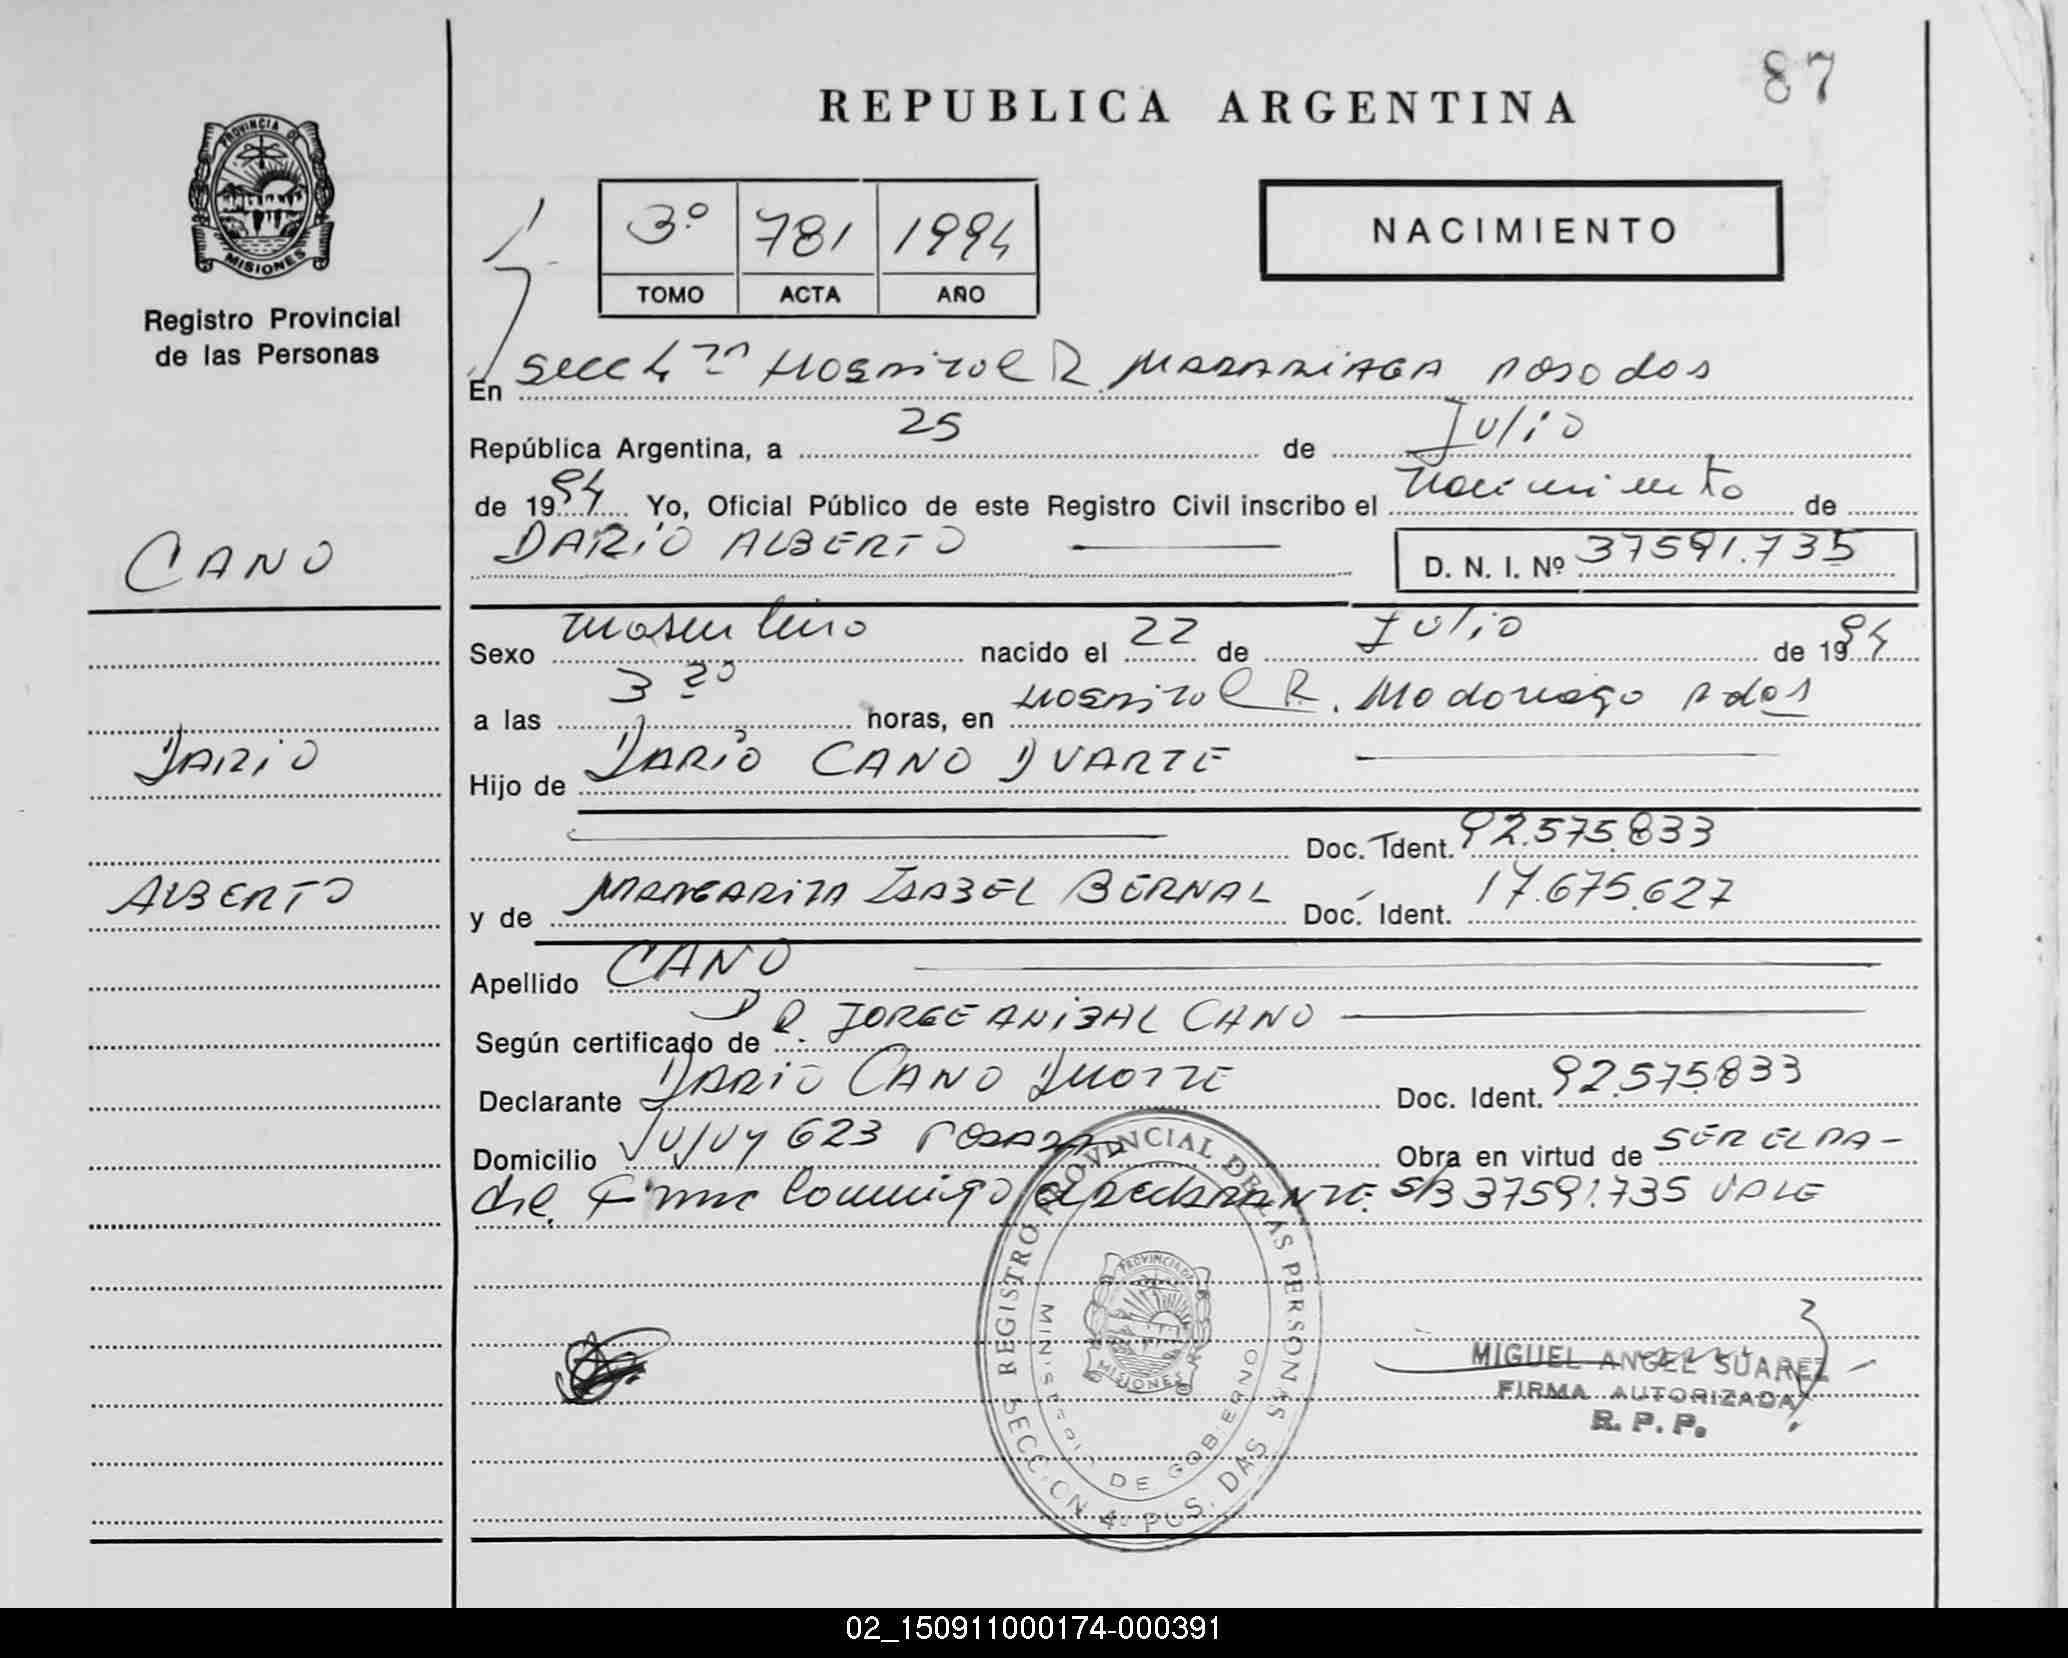 87
REPUBLICA ARGENTINA
PROVINCIA DE
MISIONES
Registro Provincial
de las Personas
3º 781 1994
TOMO ACTA AÑO
NACIMIENTO
En Secc 4ta Hospital R. MADARIAGA Posadas
República Argentina, a 25 de Julio
de 1994 Yo, Oficial Público de este Registro Civil inscribo el nacimiento de
CANO
DARIO ALBERTO D. N. I. Nº 37591.735
Sexo masculino nacido el 22 de Julio de 1994
a las 3 20 horas, en Hospital R. Madariaga Pdas
DARIO
Hijo de DARIO CANO DUARTE
Doc. Ident. 92.575.833
ALBERTO
y de MARGARITA ISABEL BERNAL Doc. Ident. 17.675.627
Apellido CANO
Según certificado de DR. JORGE ANIBAL CANO
Declarante DARIO CANO DUARTE Doc. Ident. 92.575.833
Domicilio Jujuy 623 POSADAS Obra en virtud de SER EL PA-
dre. Firma conmigo el DECLARANTE. S/B 37591.735 VALE
REGISTRO PROVINCIAL DE LAS PERSONAS
MINISTERIO DE GOBIERNO
PROVINCIA DE
MISIONES
SECCION 4a PCS. DAS
MIGUEL ANGEL SUAREZ
FIRMA AUTORIZADA
R. P. P.
02_150911000174-000391